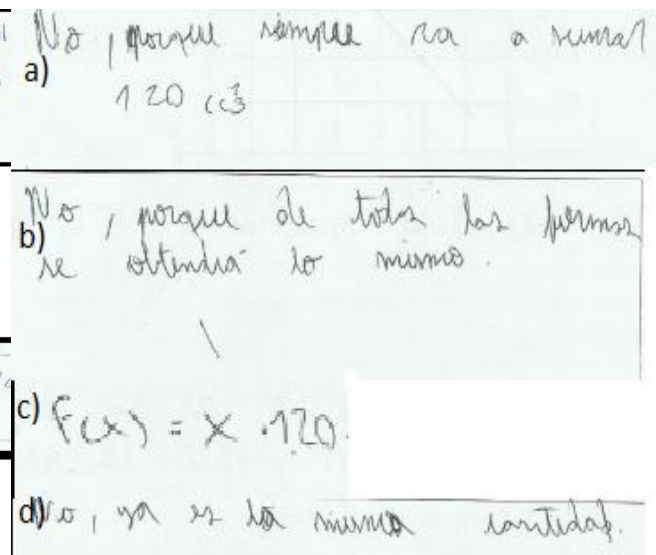 No, porque siempre va a sumar
a)
120 cc3
No, porque de todas las formas
b)
se obtendrá lo mismo.
c) F(x) = X · 120.
d) No, ya es la misma cantidad.